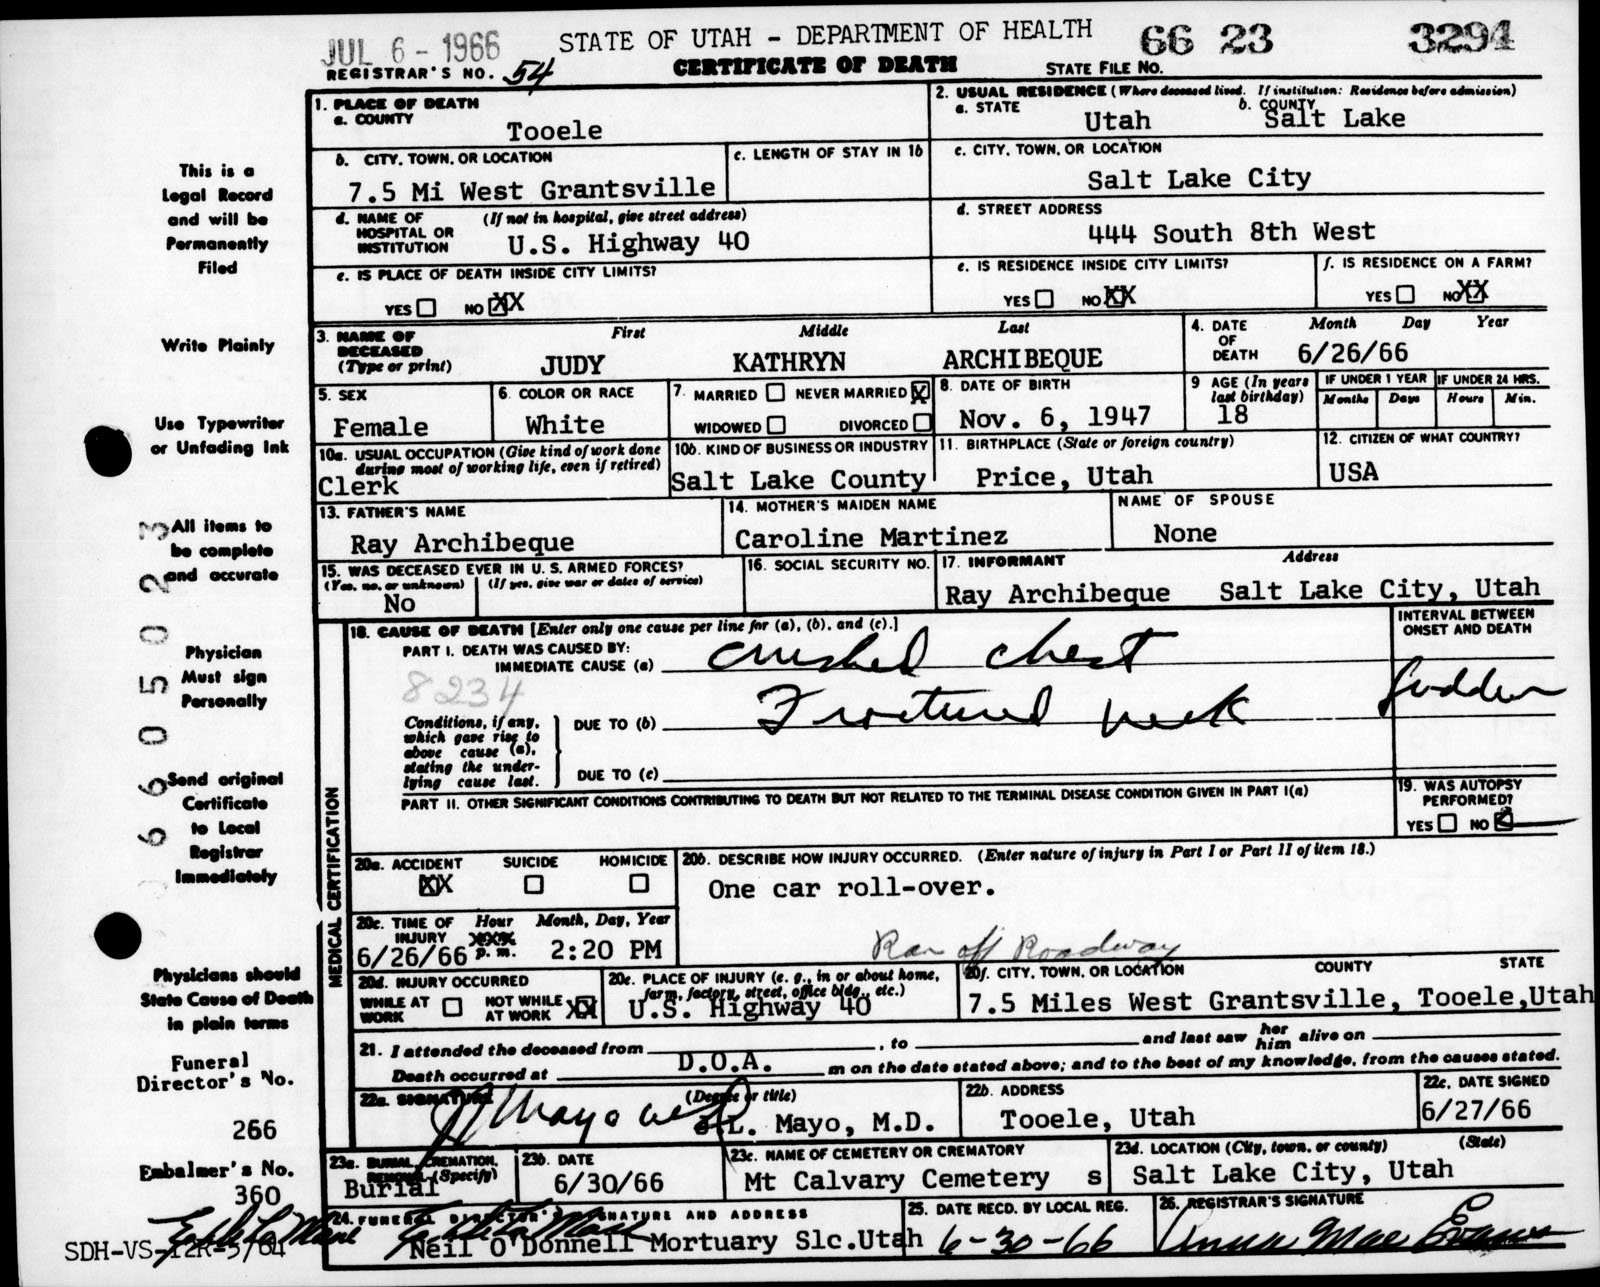 JUL 6 - 1966 STATE OF UTAH - DEPARTMENT OF HEALTH 66 23 3294
REGISTRAR'S NO. 54 CERTIFICATE OF DEATH STATE FILE NO.
1. PLACE OF DEATH
a. COUNTY
Tooele
2. USUAL RESIDENCE (Where deceased lived. If institution: Residence before admission)
a. STATE Utah b. COUNTY Salt Lake
b. CITY, TOWN, OR LOCATION
7.5 Mi West Grantsville
c. LENGTH OF STAY IN 1b
c. CITY, TOWN, OR LOCATION
Salt Lake City
d. NAME OF HOSPITAL OR INSTITUTION (If not in hospital, give street address)
U.S. Highway 40
d. STREET ADDRESS
444 South 8th West
e. IS PLACE OF DEATH INSIDE CITY LIMITS?
YES NO XX
e. IS RESIDENCE INSIDE CITY LIMITS?
YES NO XX
f. IS RESIDENCE ON A FARM?
YES NO XX
3. NAME OF DECEASED (Type or print)
First Middle Last
JUDY KATHRYN ARCHIBEQUE
4. DATE OF DEATH
Month Day Year
6/26/66
5. SEX
Female
6. COLOR OR RACE
White
7. MARRIED NEVER MARRIED X
WIDOWED DIVORCED
8. DATE OF BIRTH
Nov. 6, 1947
9 AGE (In years last birthday)
18
IF UNDER 1 YEAR
Months Days
IF UNDER 24 HRS.
Hours Min.
10a. USUAL OCCUPATION (Give kind of work done during most of working life, even if retired)
Clerk
10b. KIND OF BUSINESS OR INDUSTRY
Salt Lake County
11. BIRTHPLACE (State or foreign country)
Price, Utah
12. CITIZEN OF WHAT COUNTRY?
USA
13. FATHER'S NAME
Ray Archibeque
14. MOTHER'S MAIDEN NAME
Caroline Martinez
NAME OF SPOUSE
None
15. WAS DECEASED EVER IN U. S. ARMED FORCES?
(Yes, no, or unknown) (If yes, give war or dates of service)
No
16. SOCIAL SECURITY NO.
17. INFORMANT Address
Ray Archibeque Salt Lake City, Utah
MEDICAL CERTIFICATION
18. CAUSE OF DEATH [Enter only one cause per line for (a), (b), and (c).]
INTERVAL BETWEEN ONSET AND DEATH
PART I. DEATH WAS CAUSED BY:
IMMEDIATE CAUSE (a) crushed chest
8234
Sudden
Conditions, if any, which gave rise to above cause (a), stating the underlying cause last.
DUE TO (b) Fractured neck
DUE TO (c)
PART II. OTHER SIGNIFICANT CONDITIONS CONTRIBUTING TO DEATH BUT NOT RELATED TO THE TERMINAL DISEASE CONDITION GIVEN IN PART I(a)
19. WAS AUTOPSY PERFORMED?
YES NO
20a. ACCIDENT SUICIDE HOMICIDE
XX
20b. DESCRIBE HOW INJURY OCCURRED. (Enter nature of injury in Part I or Part II of item 18.)
One car roll-over.
Ran off Roadway
20c. TIME OF INJURY Hour Month, Day, Year
6/26/66 p. m. 2:20 PM
20d. INJURY OCCURRED
WHILE AT WORK NOT WHILE AT WORK XX
20e. PLACE OF INJURY (e. g., in or about home, farm, factory, street, office bldg., etc.)
U.S. Highway 40
20f. CITY, TOWN, OR LOCATION COUNTY STATE
7.5 Miles West Grantsville, Tooele,Utah
21. I attended the deceased from , to and last saw her him alive on
Death occurred at D.O.A. m on the date stated above; and to the best of my knowledge, from the causes stated.
22a. SIGNATURE (Degree or title)
Mayo L. Mayo, M.D.
22b. ADDRESS
Tooele, Utah
22c. DATE SIGNED
6/27/66
23a. BURIAL, CREMATION, REMOVAL (Specify)
Burial
23b. DATE
6/30/66
23c. NAME OF CEMETERY OR CREMATORY
Mt Calvary Cemetery s
23d. LOCATION (City, town, or county) (State)
Salt Lake City, Utah
24. FUNERAL DIRECTOR'S SIGNATURE AND ADDRESS
Neil O'Donnell Mortuary Slc.Utah
25. DATE RECD. BY LOCAL REG.
6-30-66
26. REGISTRAR'S SIGNATURE
Anna Mae Evans
This is a
Legal Record
and will be
Permanently
Filed
Write Plainly
Use Typewriter
or Unfading Ink
All items to
be complete
and accurate
Physician
Must sign
Personally
Send original
Certificate
to Local
Registrar
Immediately
Physicians should
State Cause of Death
in plain terms
Funeral
Director's No.
266
Embalmer's No.
360
SDH-VS-12R-5/64
66050523